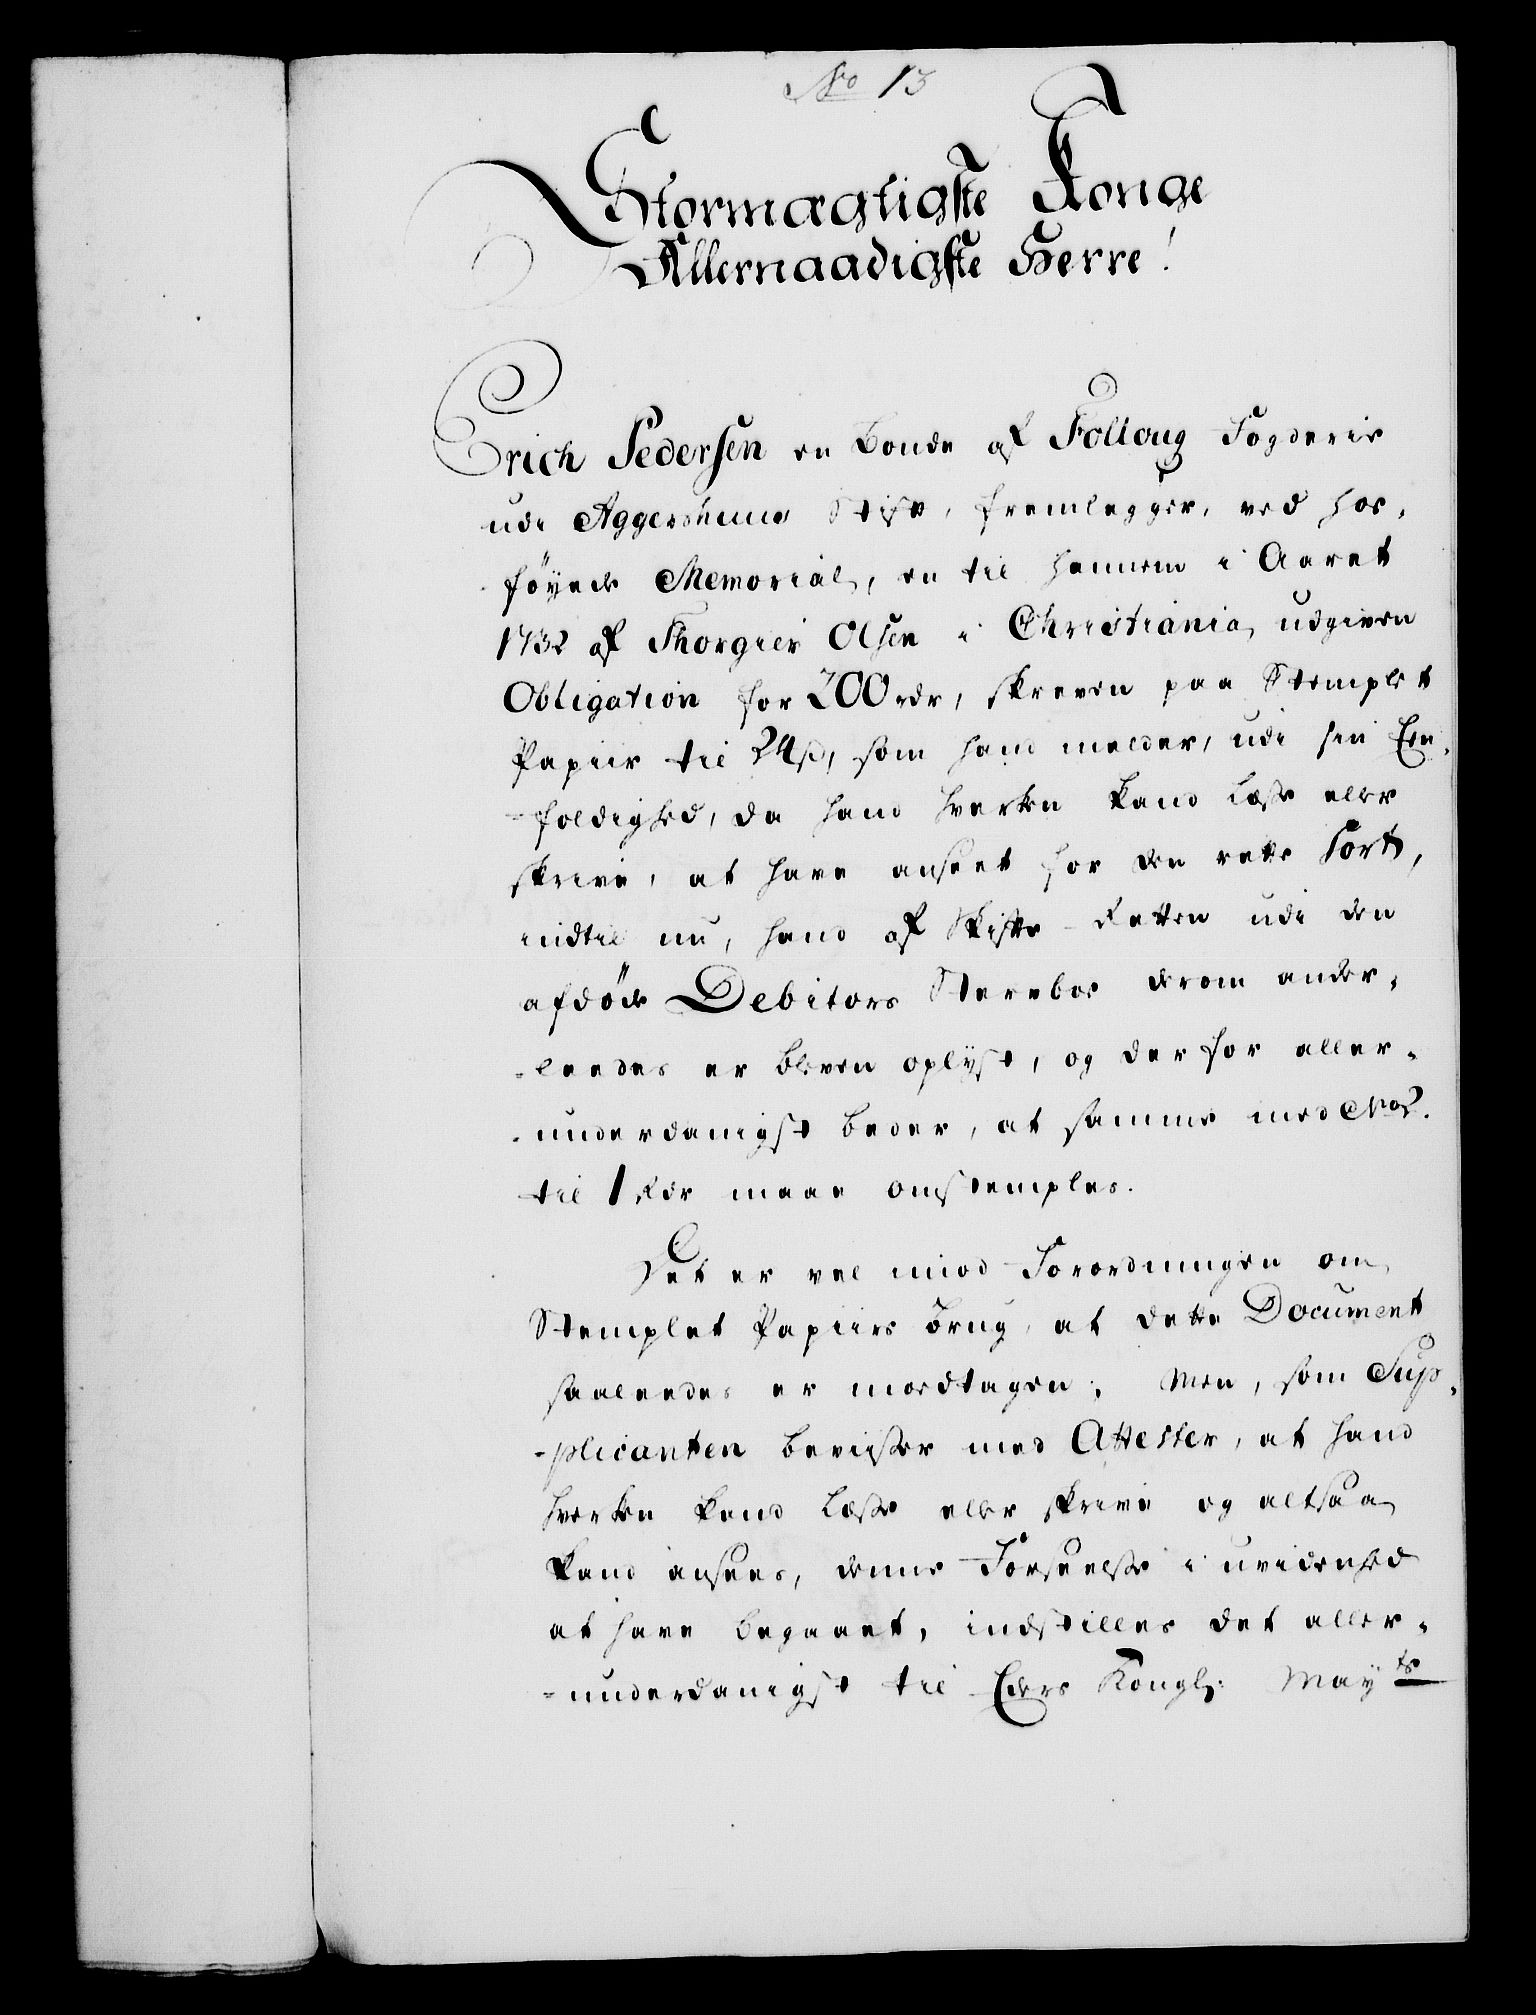 No 13
Stormægtigste Konge
Allernaadigste Herre!
Erich Pedersen en Bonde af Folloug Fogderie
udi Aggershuus Stift, fremlegger, ved hos-
föyede Memorial, en til hannem i Aaret
1732 af Thorgier Olsen i Christiania udgiven
Obligation for 200 rdr, skreven paa Stemplet
Papiir til 24 s, som hand melder, udi sin Een-
-foldighed, da hand hverken kand læse eller
skrive, at have anseet for den rette Sort,
indtil nu, hand af Skifte-Retten udi den
afdöde Debitors Sterboe derom ander-
-leedes er bleven oplyst, og derfor aller-
-underdanigst beder, at samme med No 2.
til 1 Rdr maae omstemples.
Det er vel imod Forordningen om
Stemplet Papiirs Brug, at dette Document
saaleedes er modtagen; Men, som Sup-
-plicanten beviiser med Attester, at hand
hverken kand læse eller skrive og altsaa
kand ansees, denne Forseelse i uvidenhed
at have begaaet, indstilles det aller-
-underdanigst til Eders Kongl: Mayts